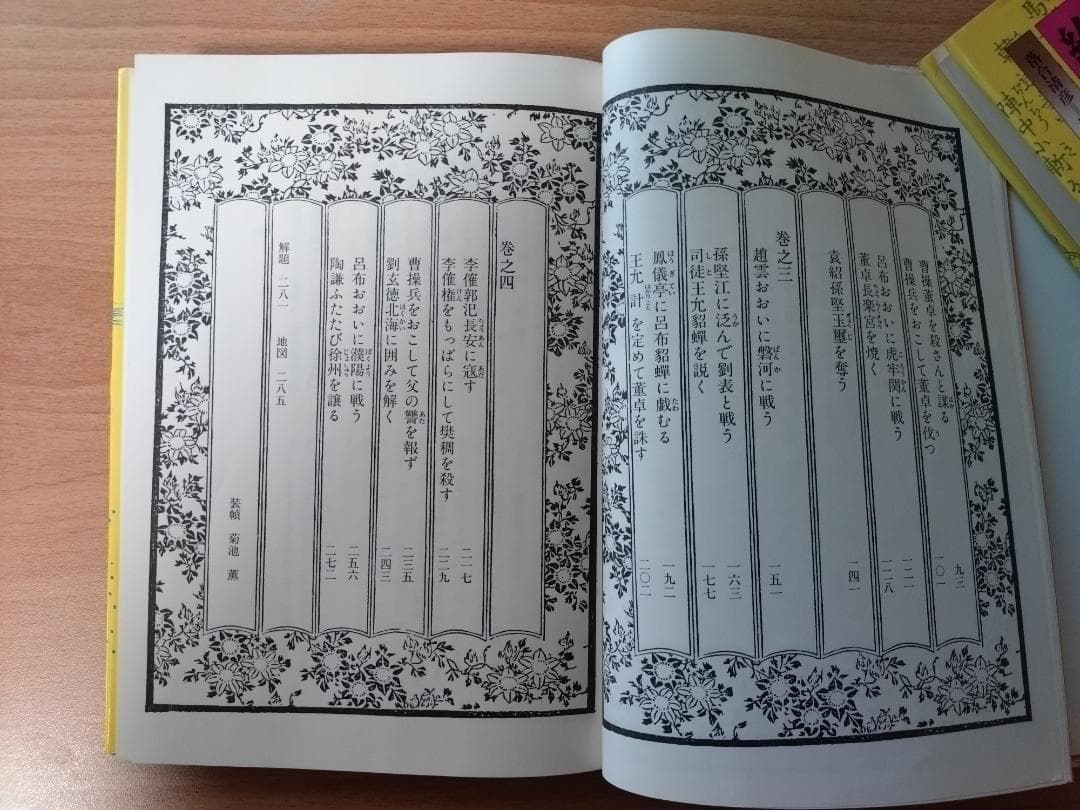 曹操董卓を殺さんと謀る 九三
曹操兵をおこして董卓を伐つ 一〇一
呂布おおいに虎牢関に戦う
董卓長楽宮を焼く 一二八
袁紹孫堅玉璽を奪う 一四一
巻之三
趙雲おおいに磐河に戦う 一五一
孫堅江に泛んで劉表と戦う 一六三
司徒王允貂蟬を説く 一七七
鳳儀亭に呂布貂蟬に戯むる 一九二
王允計を定めて董卓を誅す 二〇二
巻之四
李傕郭汜長安に寇す 二一七
李傕権をもっぱらにして樊稠を殺す 二二九
曹操兵をおこして父の讐を報ず 二三五
劉玄徳北海に囲みを解く 二四三
呂布おおいに濮陽に戦う 二五六
陶謙ふたたび徐州を譲る 二七二
解題 二八一 地図 二八五
装幀 菊池 薫
落合清彦